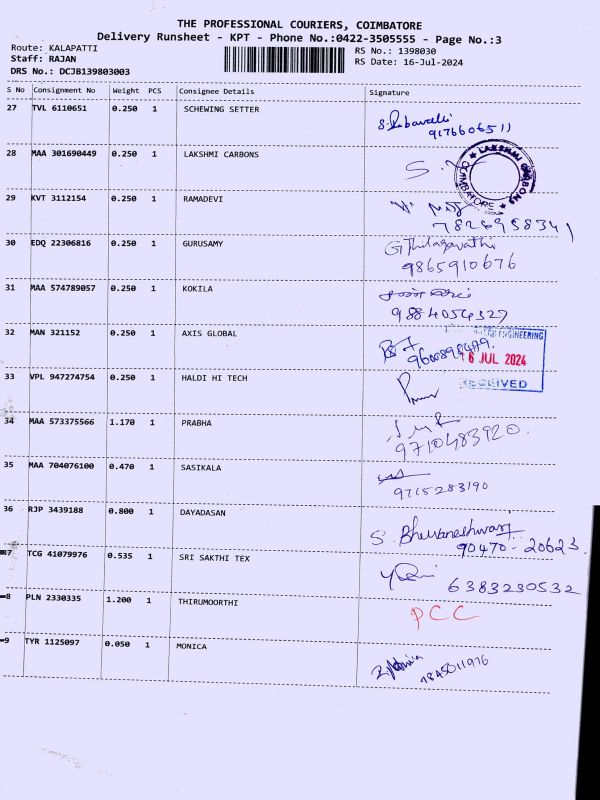 THE PROFESSIONAL COURIERS, COIMBATORE
Delivery Runsheet - KPT - Phone No.:0422-3505555 - Page No.:3
Route: KALAPATTI
RS No.: 1398030
Staff: RAJAN
RS Date: 16-Jul-2024
DRS No.: DCJB139803003
S No Consignment No Weight PCS Consignee Details Signature
27 TVL 6110651 0.250 1 SCHEWING SETTER
9176606511
28 MAA 301690449 0.250 1 LAKSHMI CARBONS
LAKSHMI CARBONS COIMBATORE
29 KVT 3112154 0.250 1 RAMADEVI
30 EDQ 22306816 0.250 1 GURUSAMY G Thilagavathi
9865910676
31 MAA 574789057 0.250 1 KOKILA
9884054327
32 MAN 321152 0.250 1 AXIS GLOBAL
ENGINEERING
16 JUL 2024
RECEIVED
33 VPL 947274754 0.250 1 HALDI HI TECH
34 MAA 573375566 1.170 1 PRABHA
9710483920.
35 MAA 704076100 0.470 1 SASIKALA
9715283190
36 RJP 3439188 0.800 1 DAYADASAN
S. Bhuvaneshwari
90470-20623
37 TCG 41079976 0.535 1 SRI SAKTHI TEX
6383230532
8 PLN 2330335 1.200 1 THIRUMOORTHI PCC
9 TYR 1125097 0.050 1 MONICA
Monica